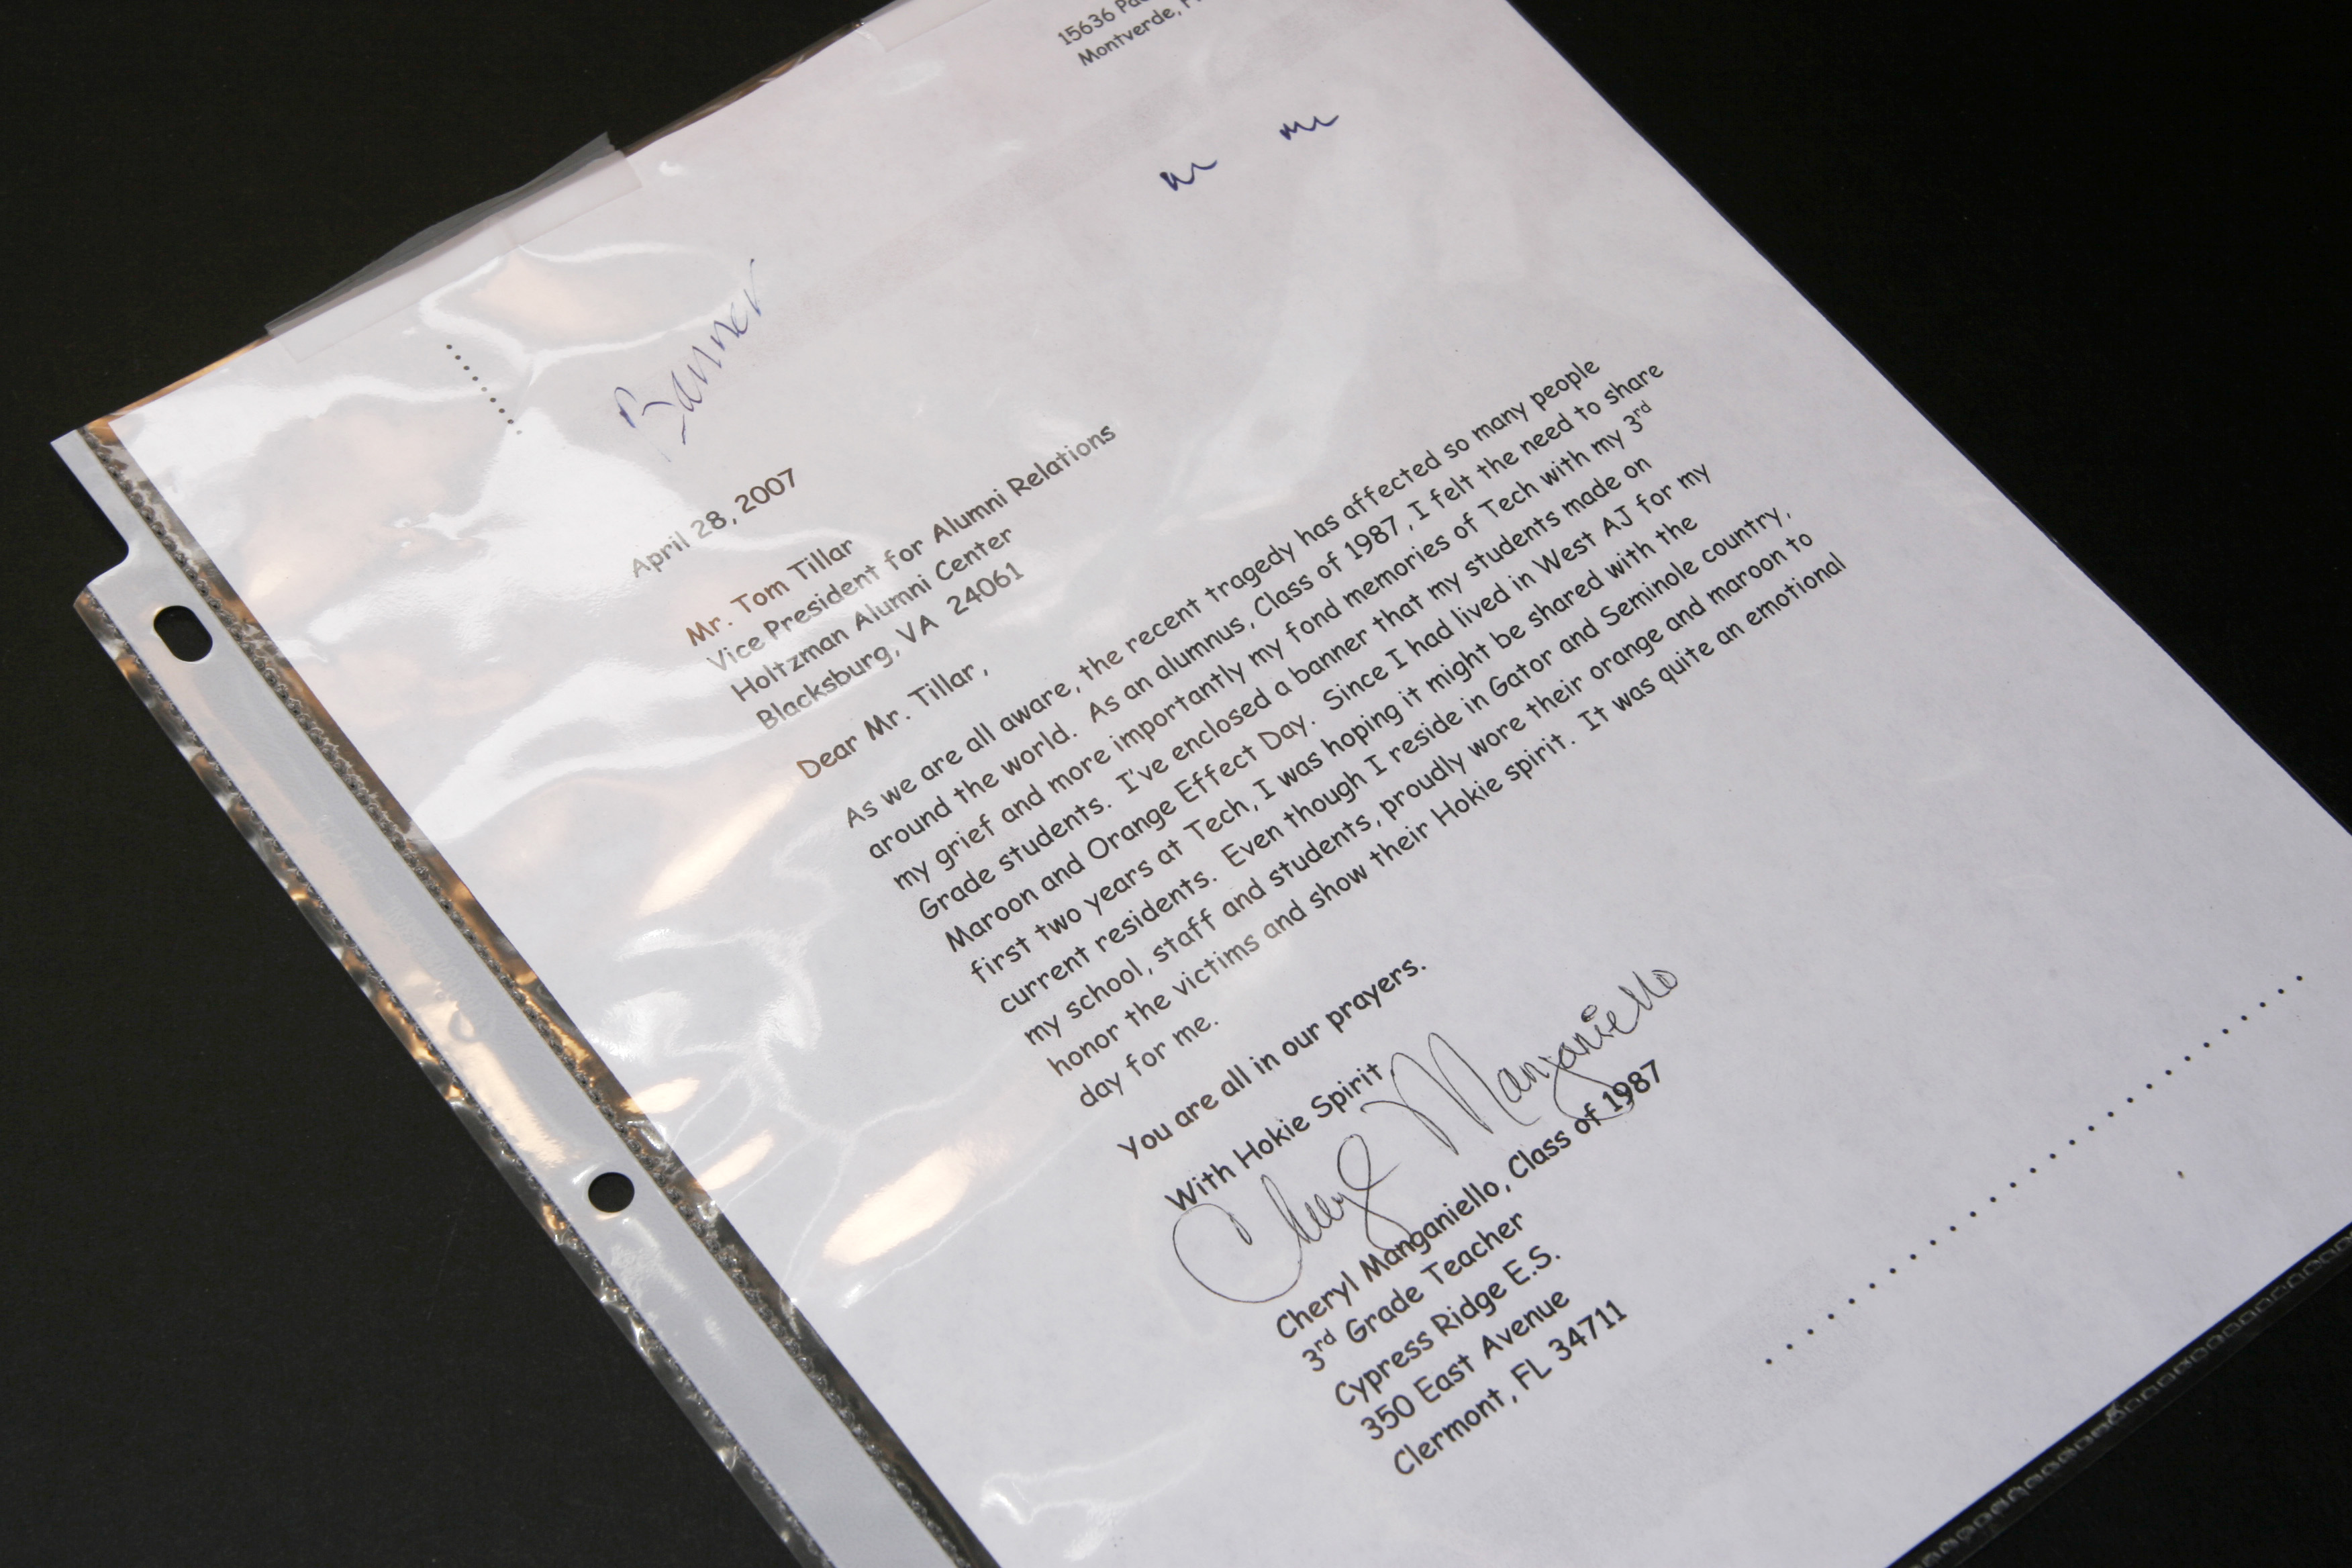 15636
Montverde,
Banner
April 28, 2007
Mr. Tom Tillar
Vice President for Alumni Relations
Holtzman Alumni Center
Blacksburg, VA 24061
Dear Mr. Tillar,
As we are all aware, the recent tragedy has affected so many people
around the world. As an alumnus, Class of 1987, I felt the need to share
my grief and more importantly my fond memories of Tech with my 3rd
Grade students. I've enclosed a banner that my students made on
Maroon and Orange Effect Day. Since I had lived in West AJ for my
first two years at Tech, I was hoping it might be shared with the
current residents. Even though I reside in Gator and Seminole country,
my school, staff and students, proudly wore their orange and maroon to
honor the victims and show their Hokie spirit. It was quite an emotional
day for me.
You are all in our prayers.
With Hokie Spirit
Cheryl Manganiello
Cheryl Manganiello, Class of 1987
3rd Grade Teacher
Cypress Ridge E.S.
350 East Avenue
Clermont, FL 34711